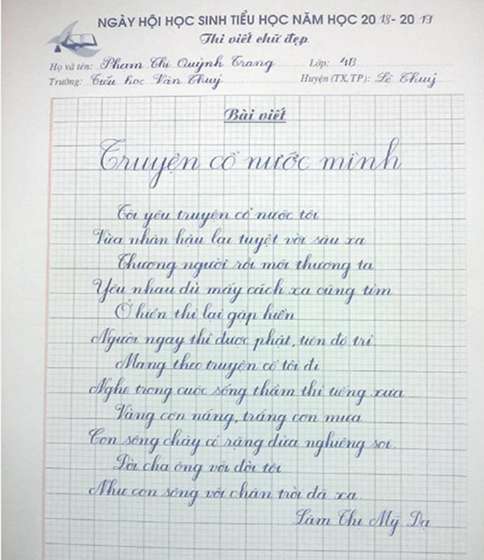 NGÀY HỘI HỌC SINH TIỂU HỌC NĂM HỌC 2018- 2019
Thi viết chữ đẹp
Họ và tên: Phạm Thị Quỳnh Trang Lớp: 4B
Trường: Tiểu học Văn Thuỷ Huyện (TX, TP): Lệ Thuỷ
Bài viết
Truyện cổ nước mình
Tôi yêu truyện cổ nước tôi
Vừa nhân hậu lại tuyệt vời sâu xa
Thương người rồi mới thương ta
Yêu nhau dù mấy cách xa cũng tìm
Ở hiền thì lại gặp hiền
Người ngay thì được phật, tiên độ trì.
Mang theo truyện cổ tôi đi
Nghe trong cuộc sống thầm thì tiếng xưa
Vàng cơn nắng, trắng cơn mưa
Con sông chảy có rặng dừa nghiêng soi.
Đời cha ông với đời tôi
Như con sông với chân trời đã xa.
Lâm Thị Mỹ Dạ